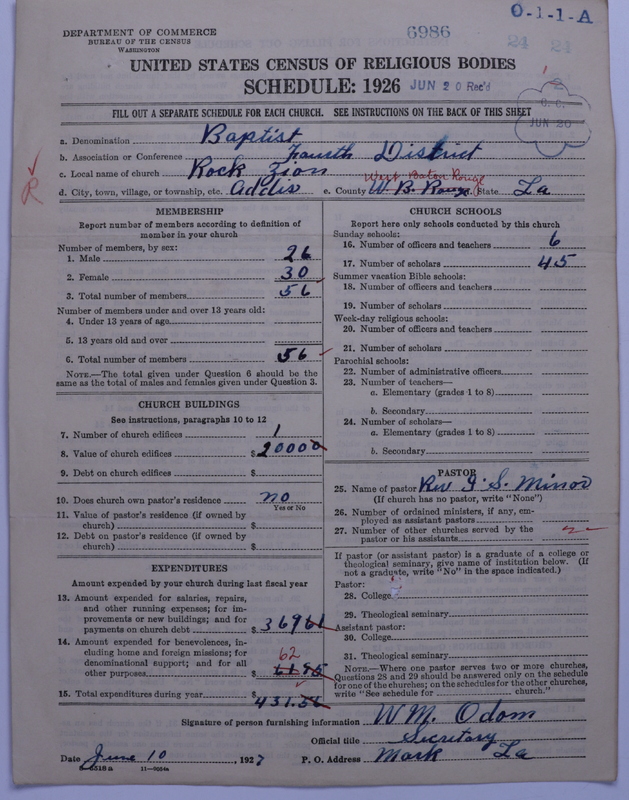 DEPARTMENT OF COMMERCE
BUREAU OF THE CENSUS
WASHINGTON
6986
O-1-1-A
24 24
UNITED STATES CENSUS OF RELIGIOUS BODIES
SCHEDULE: 1926 JUN 20 Rec'd
C. C.
JUN 20
FILL OUT A SEPARATE SCHEDULE FOR EACH CHURCH. SEE INSTRUCTIONS ON THE BACK OF THIS SHEET
a. Denomination Baptist
b. Association or Conference Fourth District
c. Local name of church Rock Zion
West Baton Rouge
R
d. City, town, village, or township, etc. Addis e. County W B. Rouge State La
MEMBERSHIP
Report number of members according to definition of
member in your church
Number of members, by sex:
1. Male 26
2. Female 30
3. Total number of members 56
Number of members under and over 13 years old:
4. Under 13 years of age
5. 13 years old and over
6. Total number of members 56
NOTE.—The total given under Question 6 should be
same as the total of males and females given under Question 3.
CHURCH BUILDINGS
See instructions, paragraphs 10 to 12
7. Number of church edifices 1
8. Value of church edifices $ 20000
9. Debt on church edifices $
10. Does church own pastor's residence no
Yes or No
11. Value of pastor's residence (if owned by
church) $
12. Debt on pastor's residence (if owned by
church) $
EXPENDITURES
Amount expended by your church during last fiscal year
13. Amount expended for salaries, repairs,
and other running expenses; for im-
provements or new buildings; and for
payments on church debt $ 36961
14. Amount expended for benevolences, in-
cluding home and foreign missions; for
denominational support; and for all
62
other purposes $ 6195
15. Total expenditures during year $ 431.56
CHURCH SCHOOLS
Report here only schools conducted by this church
Sunday schools:
16. Number of officers and teachers 6
17. Number of scholars 45
Summer vacation Bible schools:
18. Number of officers and teachers
19. Number of scholars
Week-day religious schools:
20. Number of officers and teachers
21. Number of scholars
Parochial schools:
22. Number of administrative officers
23. Number of teachers—
a. Elementary (grades 1 to 8)
b. Secondary
24. Number of scholars—
a. Elementary (grades 1 to 8)
b. Secondary
PASTOR
25. Name of pastor Rev J. S. Minor
(If church has no pastor, write "None")
26. Number of ordained ministers, if any, em-
ployed as assistant pastors
27. Number of other churches served by the
pastor or his assistants
If pastor (or assistant pastor) is a graduate of a college or
theological seminary, give name of institution below. (If
not a graduate, write "No" in the space indicated.)
Pastor:
28. College
29. Theological seminary
Assistant pastor:
30. College
31. Theological seminary
NOTE.—Where one pastor serves two or more churches,
Questions 28 and 29 should be answered only on the schedule
for one of the churches; on the schedules for the other churches,
write "See schedule for church."
Signature of person furnishing information W M. Odom
Official title Secretary
Date June 10, 1927 P. O. Address Mark La
8518a 11—9054a